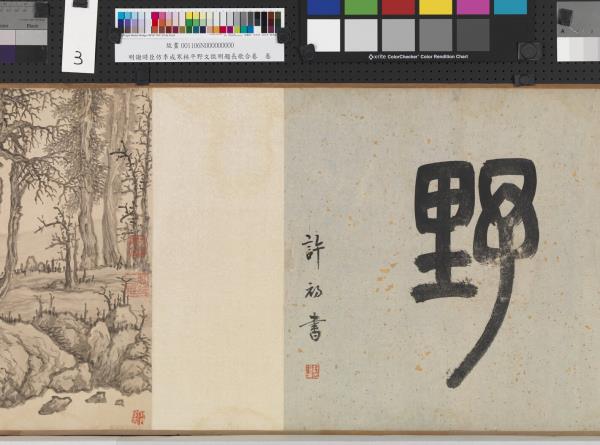 Black
3
故畫 001106N000000000
明謝時臣仿李成寒林平野文徵明題長歌合卷 卷
x·rite ColorChecker® Color Rendition Chart
野
許初書